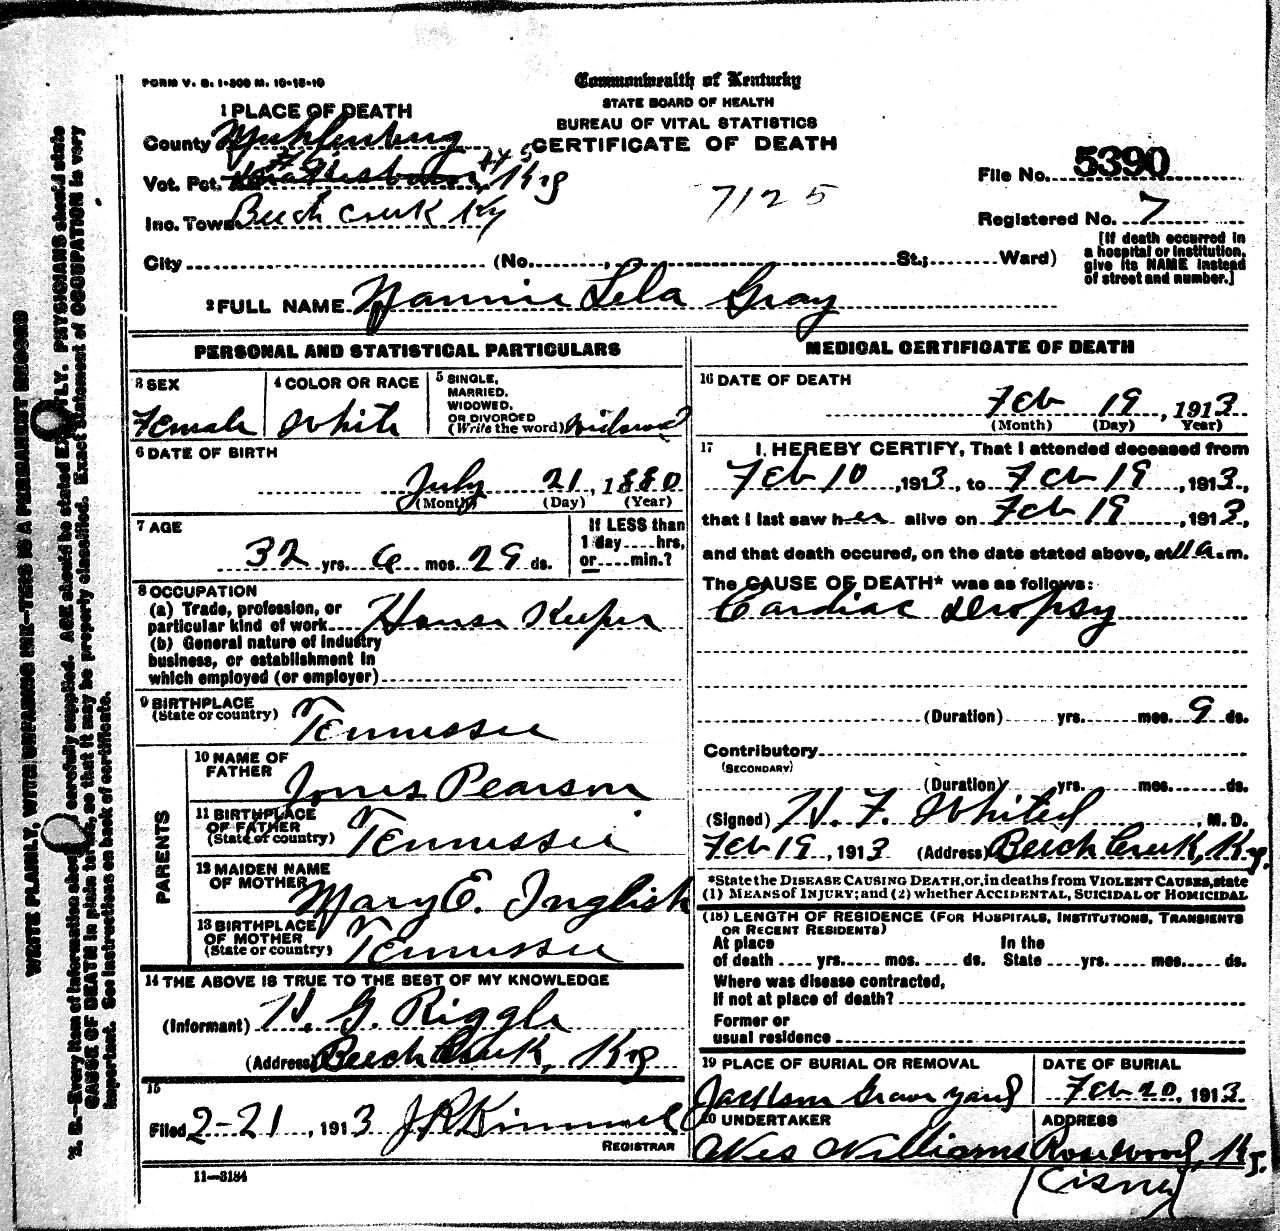 FORM V. S. 1-300 M. 10-18-10
Commonwealth of Kentucky
STATE BOARD OF HEALTH
BUREAU OF VITAL STATISTICS
CERTIFICATE OF DEATH
1 PLACE OF DEATH
County Muhlenburg
Vot. Pct. Ky
Inc. Town Beech Creek Ky
7125
File No. 5390
Registered No. 7
[If death occurred in
a hospital or institution,
give its NAME instead
of street and number.]
City (No. , St.; Ward)
2 FULL NAME Nannie Lela Gray
PERSONAL AND STATISTICAL PARTICULARS
3 SEX
Female
4 COLOR OR RACE
White
5 SINGLE,
MARRIED,
WIDOWED,
OR DIVORCED
(Write the word) Widowed
6 DATE OF BIRTH
July 21, 1880
(Month) (Day) (Year)
7 AGE
32 yrs. 6 mos. 29 ds.
If LESS than
1 day....hrs,
or....min.?
8 OCCUPATION
(a) Trade, profession, or
particular kind of work House Keeper
(b) General nature of industry
business, or establishment in
which employed (or employer)
9 BIRTHPLACE
(State or country) Tennessee
PARENTS
10 NAME OF
FATHER Jones Pearson
11 BIRTHPLACE
OF FATHER
(State or country) Tennessee
12 MAIDEN NAME
OF MOTHER Mary E. Inglish
13 BIRTHPLACE
OF MOTHER
(State or country) Tennessee
14 THE ABOVE IS TRUE TO THE BEST OF MY KNOWLEDGE
(Informant) H. G. Riggle
(Address) Beech Creek, Ky
15
Filed 2-21, 1913 J R Kimmel
REGISTRAR
11—3184
MEDICAL CERTIFICATE OF DEATH
16 DATE OF DEATH
Feb 19, 1913
(Month) (Day) Year)
17 I. HEREBY CERTIFY, That I attended deceased from
Feb 10, 1913, to Feb 19, 1913,
that I last saw her alive on Feb 19, 1913,
and that death occured, on the date stated above, at 11 a.m.
The CAUSE OF DEATH* was as follows:
Cardiac dropsy
(Duration) yrs. mos. 9 ds.
Contributory
(SECONDARY)
(Duration) yrs. mos. ds.
(Signed) H. F. Whited, M. D.
Feb 19, 1913 (Address) Beech Creek, Ky.
*State the DISEASE CAUSING DEATH, or, in deaths from VIOLENT CAUSES, state
(1) MEANS of INJURY; and (2) whether ACCIDENTAL, SUICIDAL or HOMICIDAL
(18) LENGTH OF RESIDENCE (FOR HOSPITALS, INSTITUTIONS, TRANSIENTS
OR RECENT RESIDENTS)
At place In the
of death .... yrs. mos. ds. State yrs. mos. ds.
Where was disease contracted,
If not at place of death?
Former or
usual residence
19 PLACE OF BURIAL OR REMOVAL
Jackson Grave yard
DATE OF BURIAL
Feb 20, 1913
20 UNDERTAKER
Wes Williams
ADDRESS
Rosewood, Ky.
(Cisney)
WRITE PLAINLY, WITH UNFADING INK—THIS IS A PERMANENT RECORD
N. B.—Every item of information should be carefully supplied. AGE should be stated EXACTLY. PHYSICIANS should state
CAUSE OF DEATH in plain terms, so that it may be properly classified. Exact statement of OCCUPATION is very
important. See instructions on back of certificate.